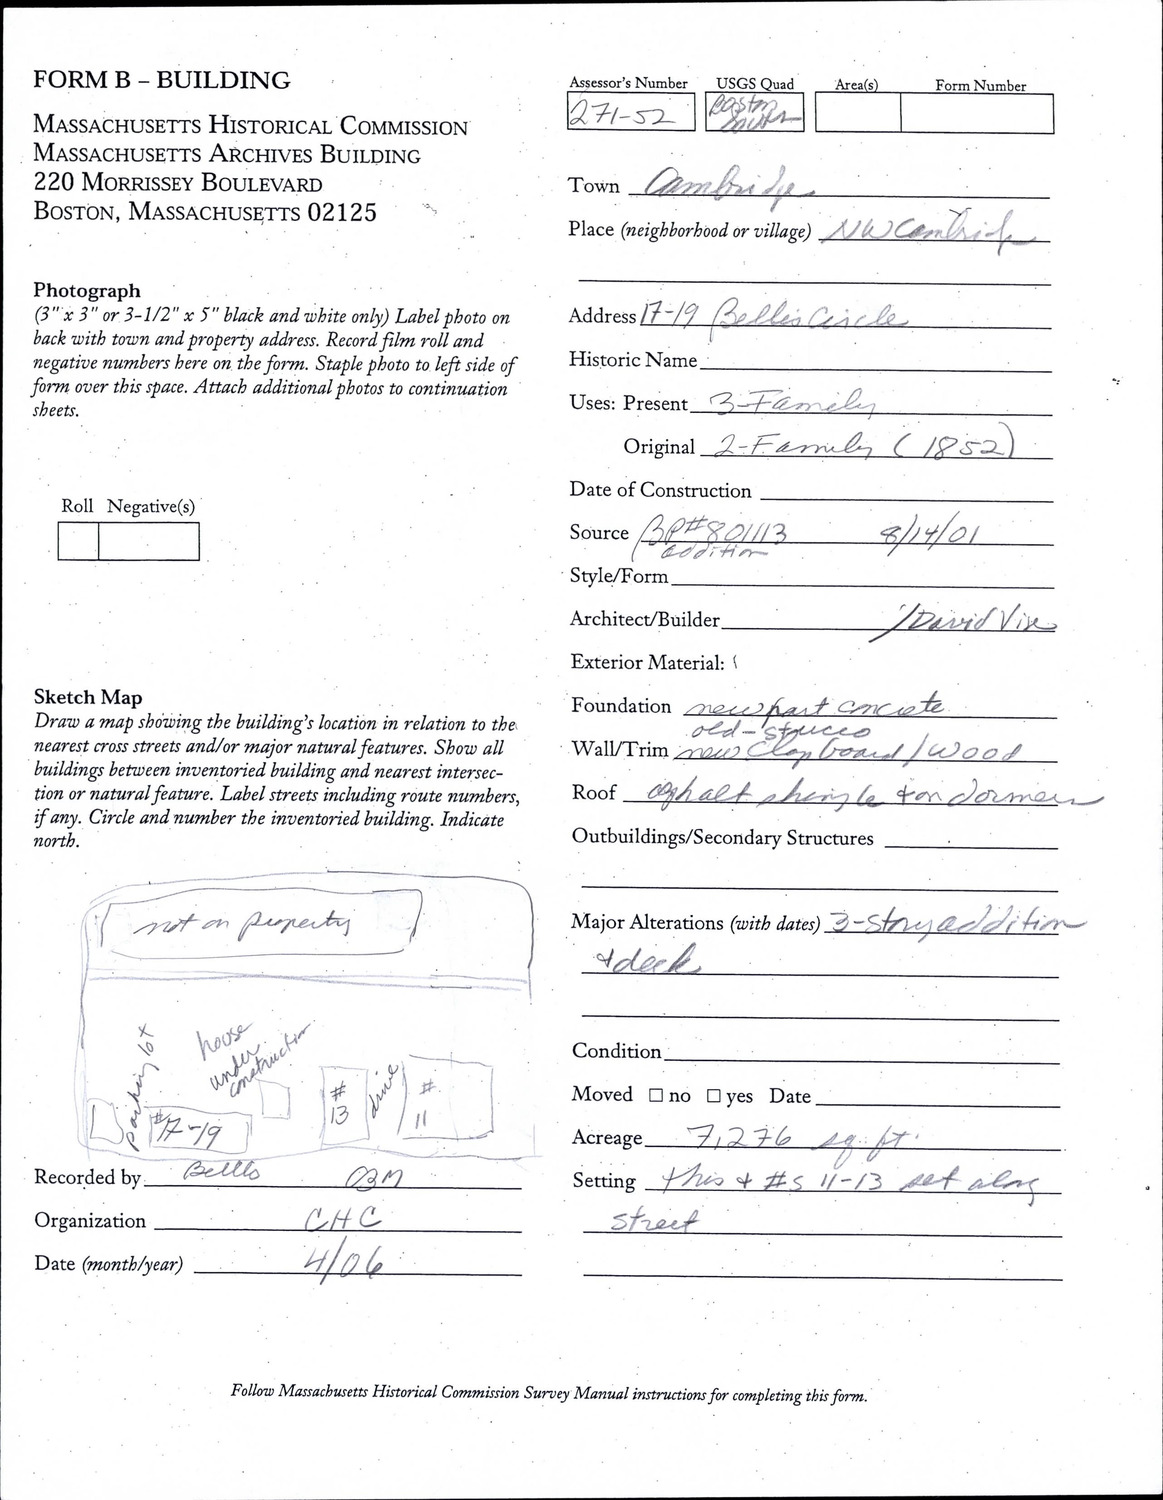 FORM B – BUILDING
MASSACHUSETTS HISTORICAL COMMISSION
MASSACHUSETTS ARCHIVES BUILDING
220 MORRISSEY BOULEVARD
BOSTON, MASSACHUSETTS 02125
Photograph
(3" x 3" or 3-1/2" x 5" black and white only) Label photo on
back with town and property address. Record film roll and
negative numbers here on the form. Staple photo to left side of
form over this space. Attach additional photos to continuation
sheets.
Roll Negative(s)
Sketch Map
Draw a map showing the building's location in relation to the
nearest cross streets and/or major natural features. Show all
buildings between inventoried building and nearest intersec-
tion or natural feature. Label streets including route numbers,
if any. Circle and number the inventoried building. Indicate
north.
not on property
parking lot
house
under
construction
#17-19
#
13
drive
#
11
Recorded by
Organization CHC
Date (month/year) 4/06
Assessor's Number USGS Quad Area(s) Form Number
271-52 Boston
Town Cambridge
Place (neighborhood or village) NW Cambridge
Address 17-19 Bellis Circle
Historic Name
Uses: Present 3-Family
Original 2-Family (1852)
Date of Construction
Source BP#801113 8/14/01
addition
Style/Form
Architect/Builder /David
Exterior Material:
Foundation new part concrete
old-stucco
Wall/Trim new clapboard/wood
Roof asphalt shingle + on dormers
Outbuildings/Secondary Structures
Major Alterations (with dates) 3-story addition
+ deck
Condition
Moved □ no □ yes Date
Acreage 7,276 sq. ft.
Setting this + #s 11-13 set along
street
Follow Massachusetts Historical Commission Survey Manual instructions for completing this form.